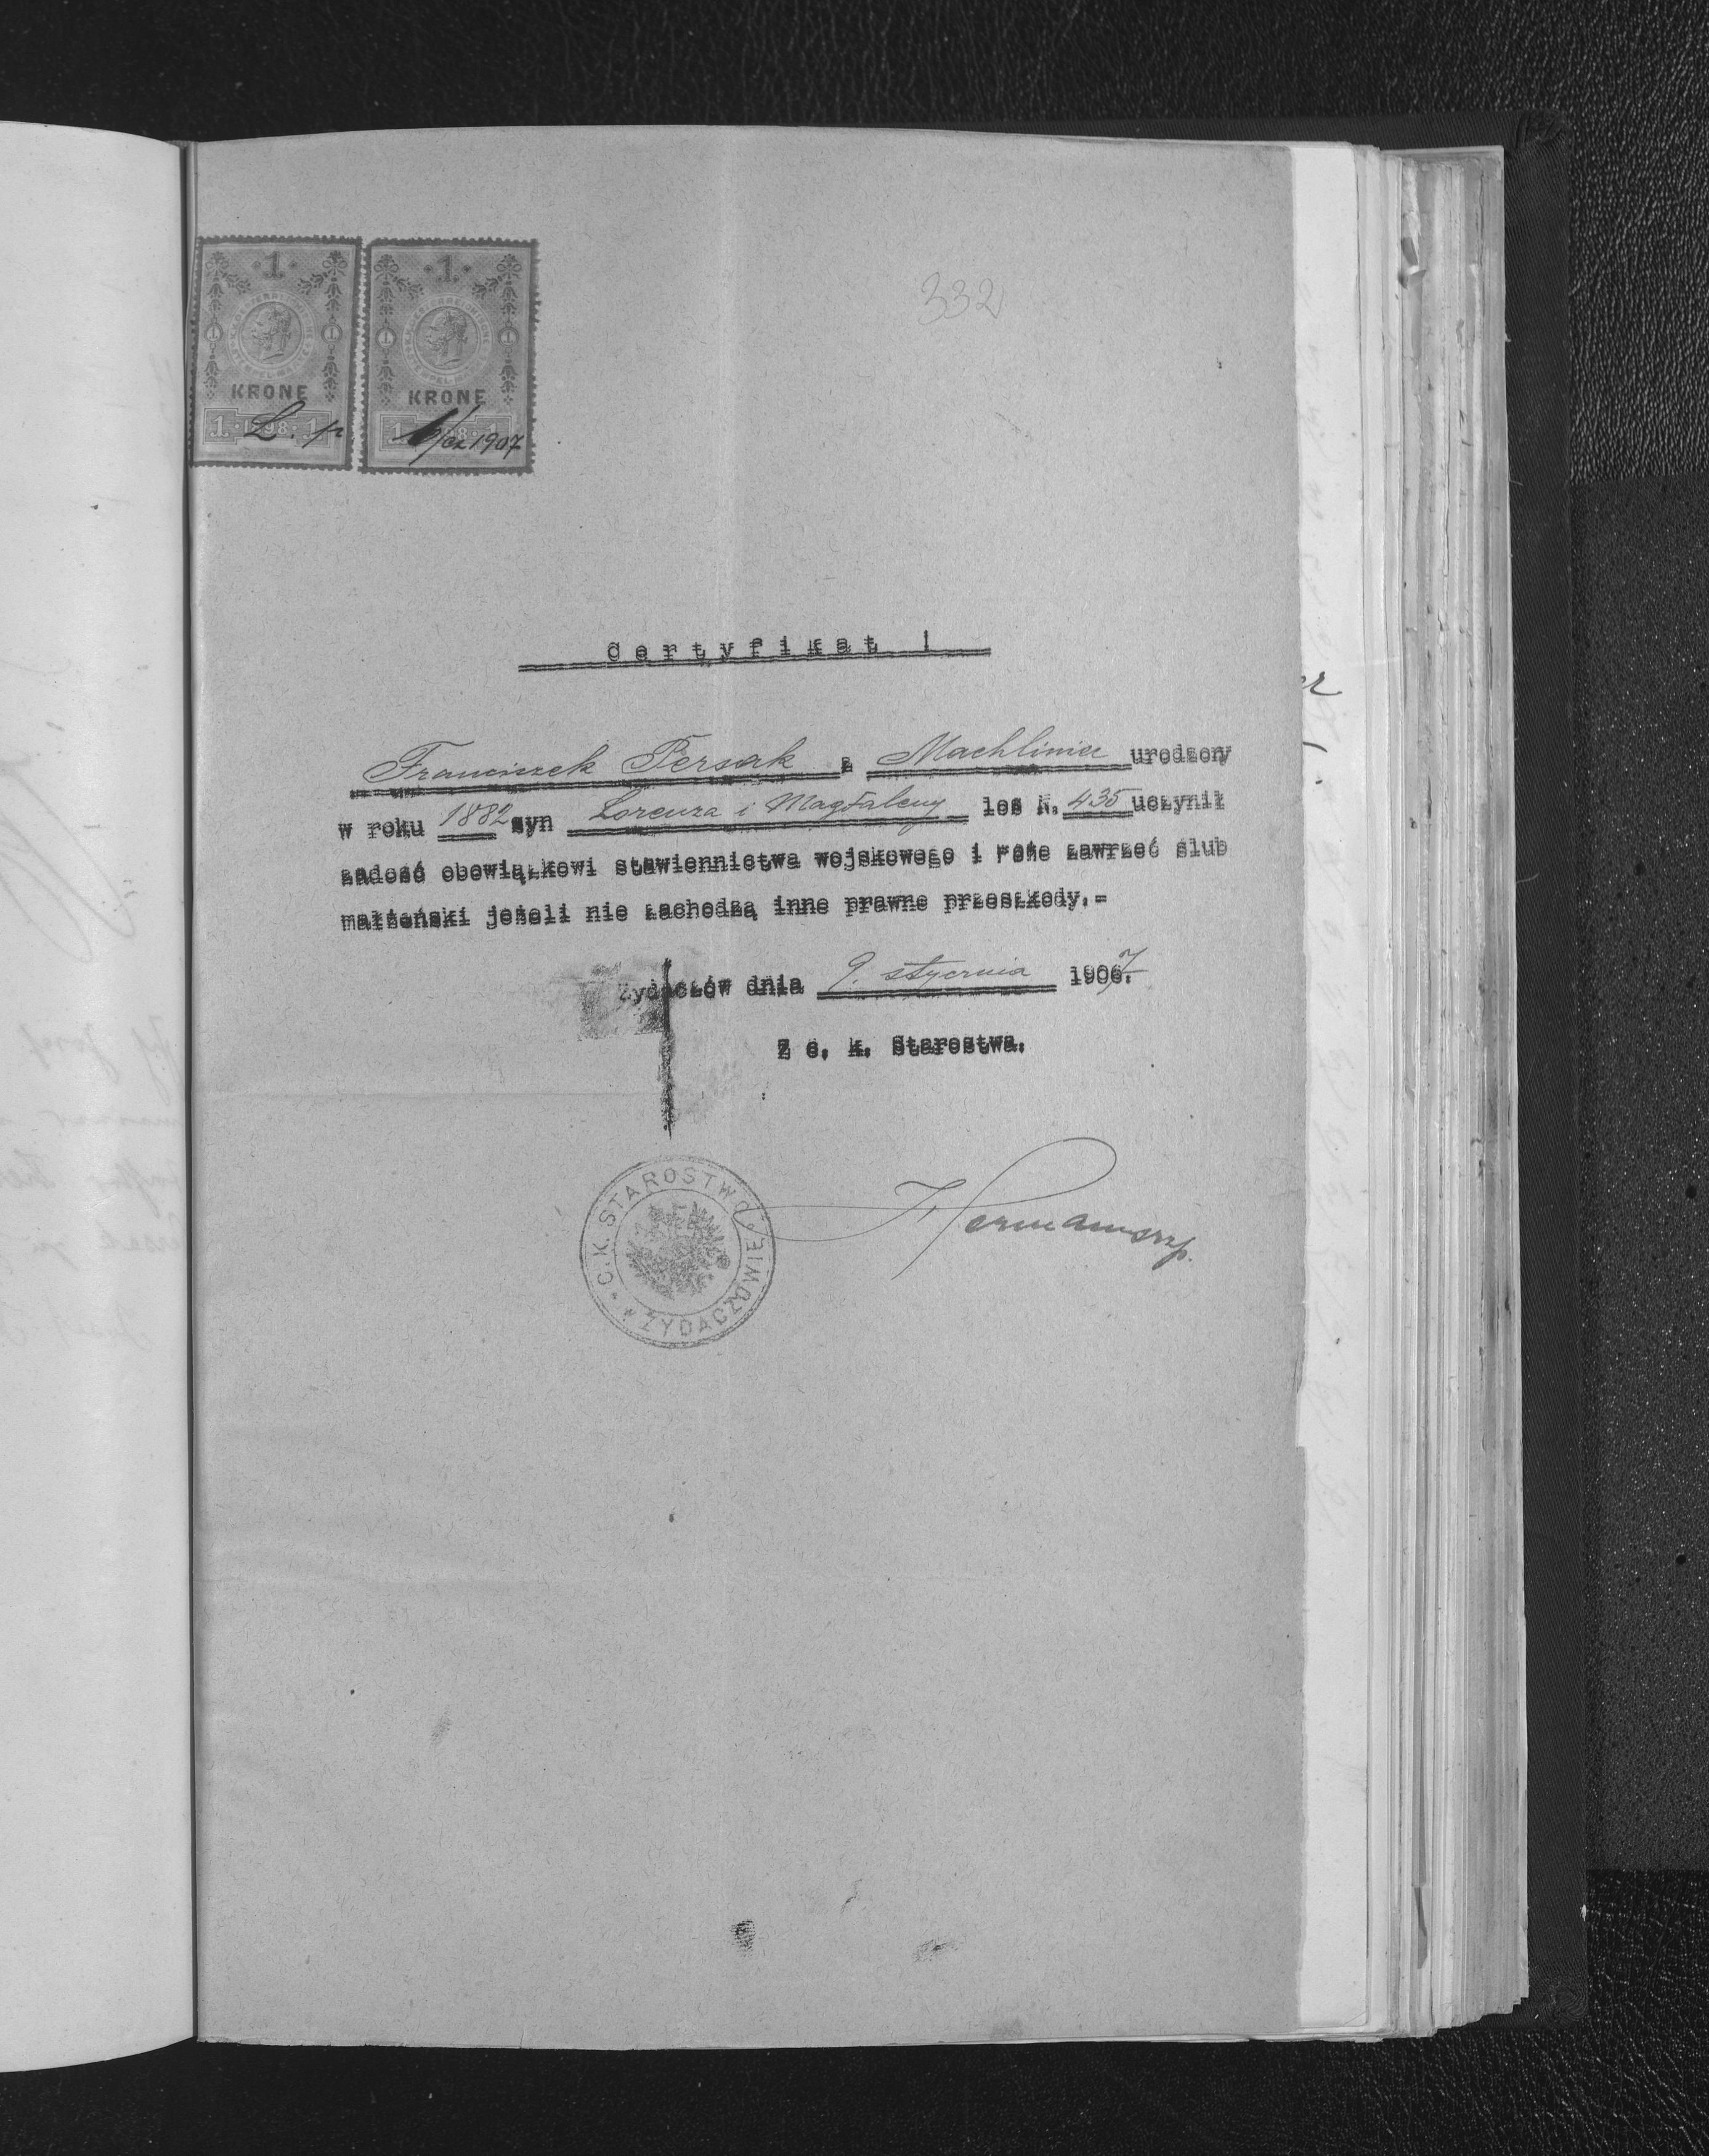 332
1. 1.
KRONE KRONE
1. 1898. 1 1. 1898. 1
L. p 1907
Certyfikat !
Franciszek Persak z Machliniec urodzony
w roku 1882 syn Lorenza i Magdaleny los N. 435 uczynił
zadość obowiązkowi stawiennictwa wojskowego i może zawrzeć ślub
małżeński jeżeli nie zachodzą inne prawne przeszkody.-
Żydaczów dnia 9. stycznia 1907.
Z c. k. Starostwa.
C.K. STAROSTWO W ŻYDACZOWIE
Hermann mp.